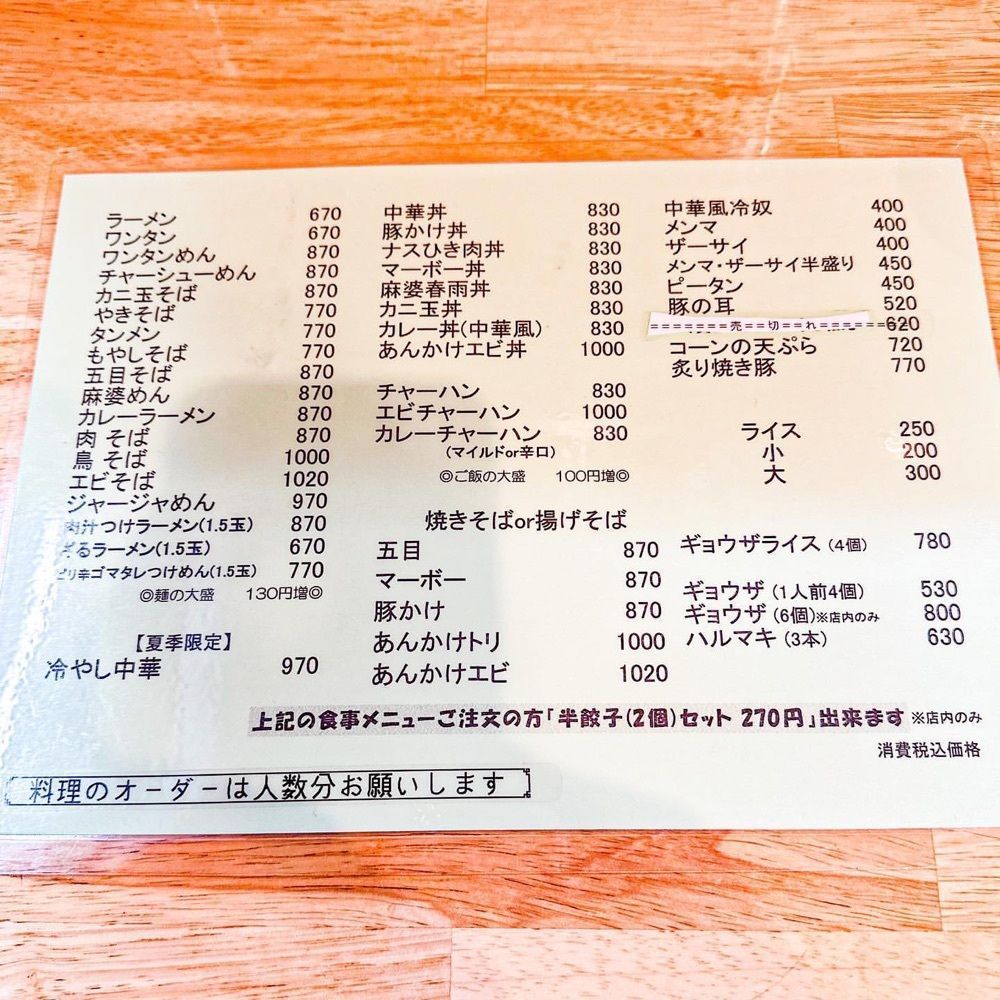 ラーメン 670
ワンタン 670
ワンタンめん 870
チャーシューめん 870
カニ玉そば 870
やきそば 770
タンメン 770
もやしそば 770
五目そば 870
麻婆めん 870
カレーラーメン 870
肉 そば 870
鳥 そば 1000
エビそば 1020
ジャージャめん 970
肉汁つけラーメン(1.5玉) 870
ざるラーメン(1.5玉) 670
ピリ辛ゴマタレつけめん(1.5玉) 770
◎麺の大盛 130円増◎
【夏季限定】
冷やし中華 970
中華丼 830
豚かけ丼 830
ナスひき肉丼 830
マーボー丼 830
麻婆春雨丼 830
カニ玉丼 830
カレー丼(中華風) 830
あんかけエビ丼 1000
チャーハン 830
エビチャーハン 1000
カレーチャーハン 830
(マイルドor辛口)
◎ご飯の大盛 100円増◎
焼きそばor揚げそば
五目 870
マーボー 870
豚かけ 870
あんかけトリ 1000
あんかけエビ 1020
中華風冷奴 400
メンマ 400
ザーサイ 400
メンマ・ザーサイ半盛り 450
ピータン 450
豚の耳 520
=======売==切==れ======= 620
コーンの天ぷら 720
炙り焼き豚 770
ライス 250
小 200
大 300
ギョウザライス (4個) 780
ギョウザ (1人前4個) 530
ギョウザ (6個)※店内のみ 800
ハルマキ (3本) 630
上記の食事メニューご注文の方「半餃子(2個)セット 270円」出来ます ※店内のみ
消費税込価格
料理のオーダーは人数分お願いします